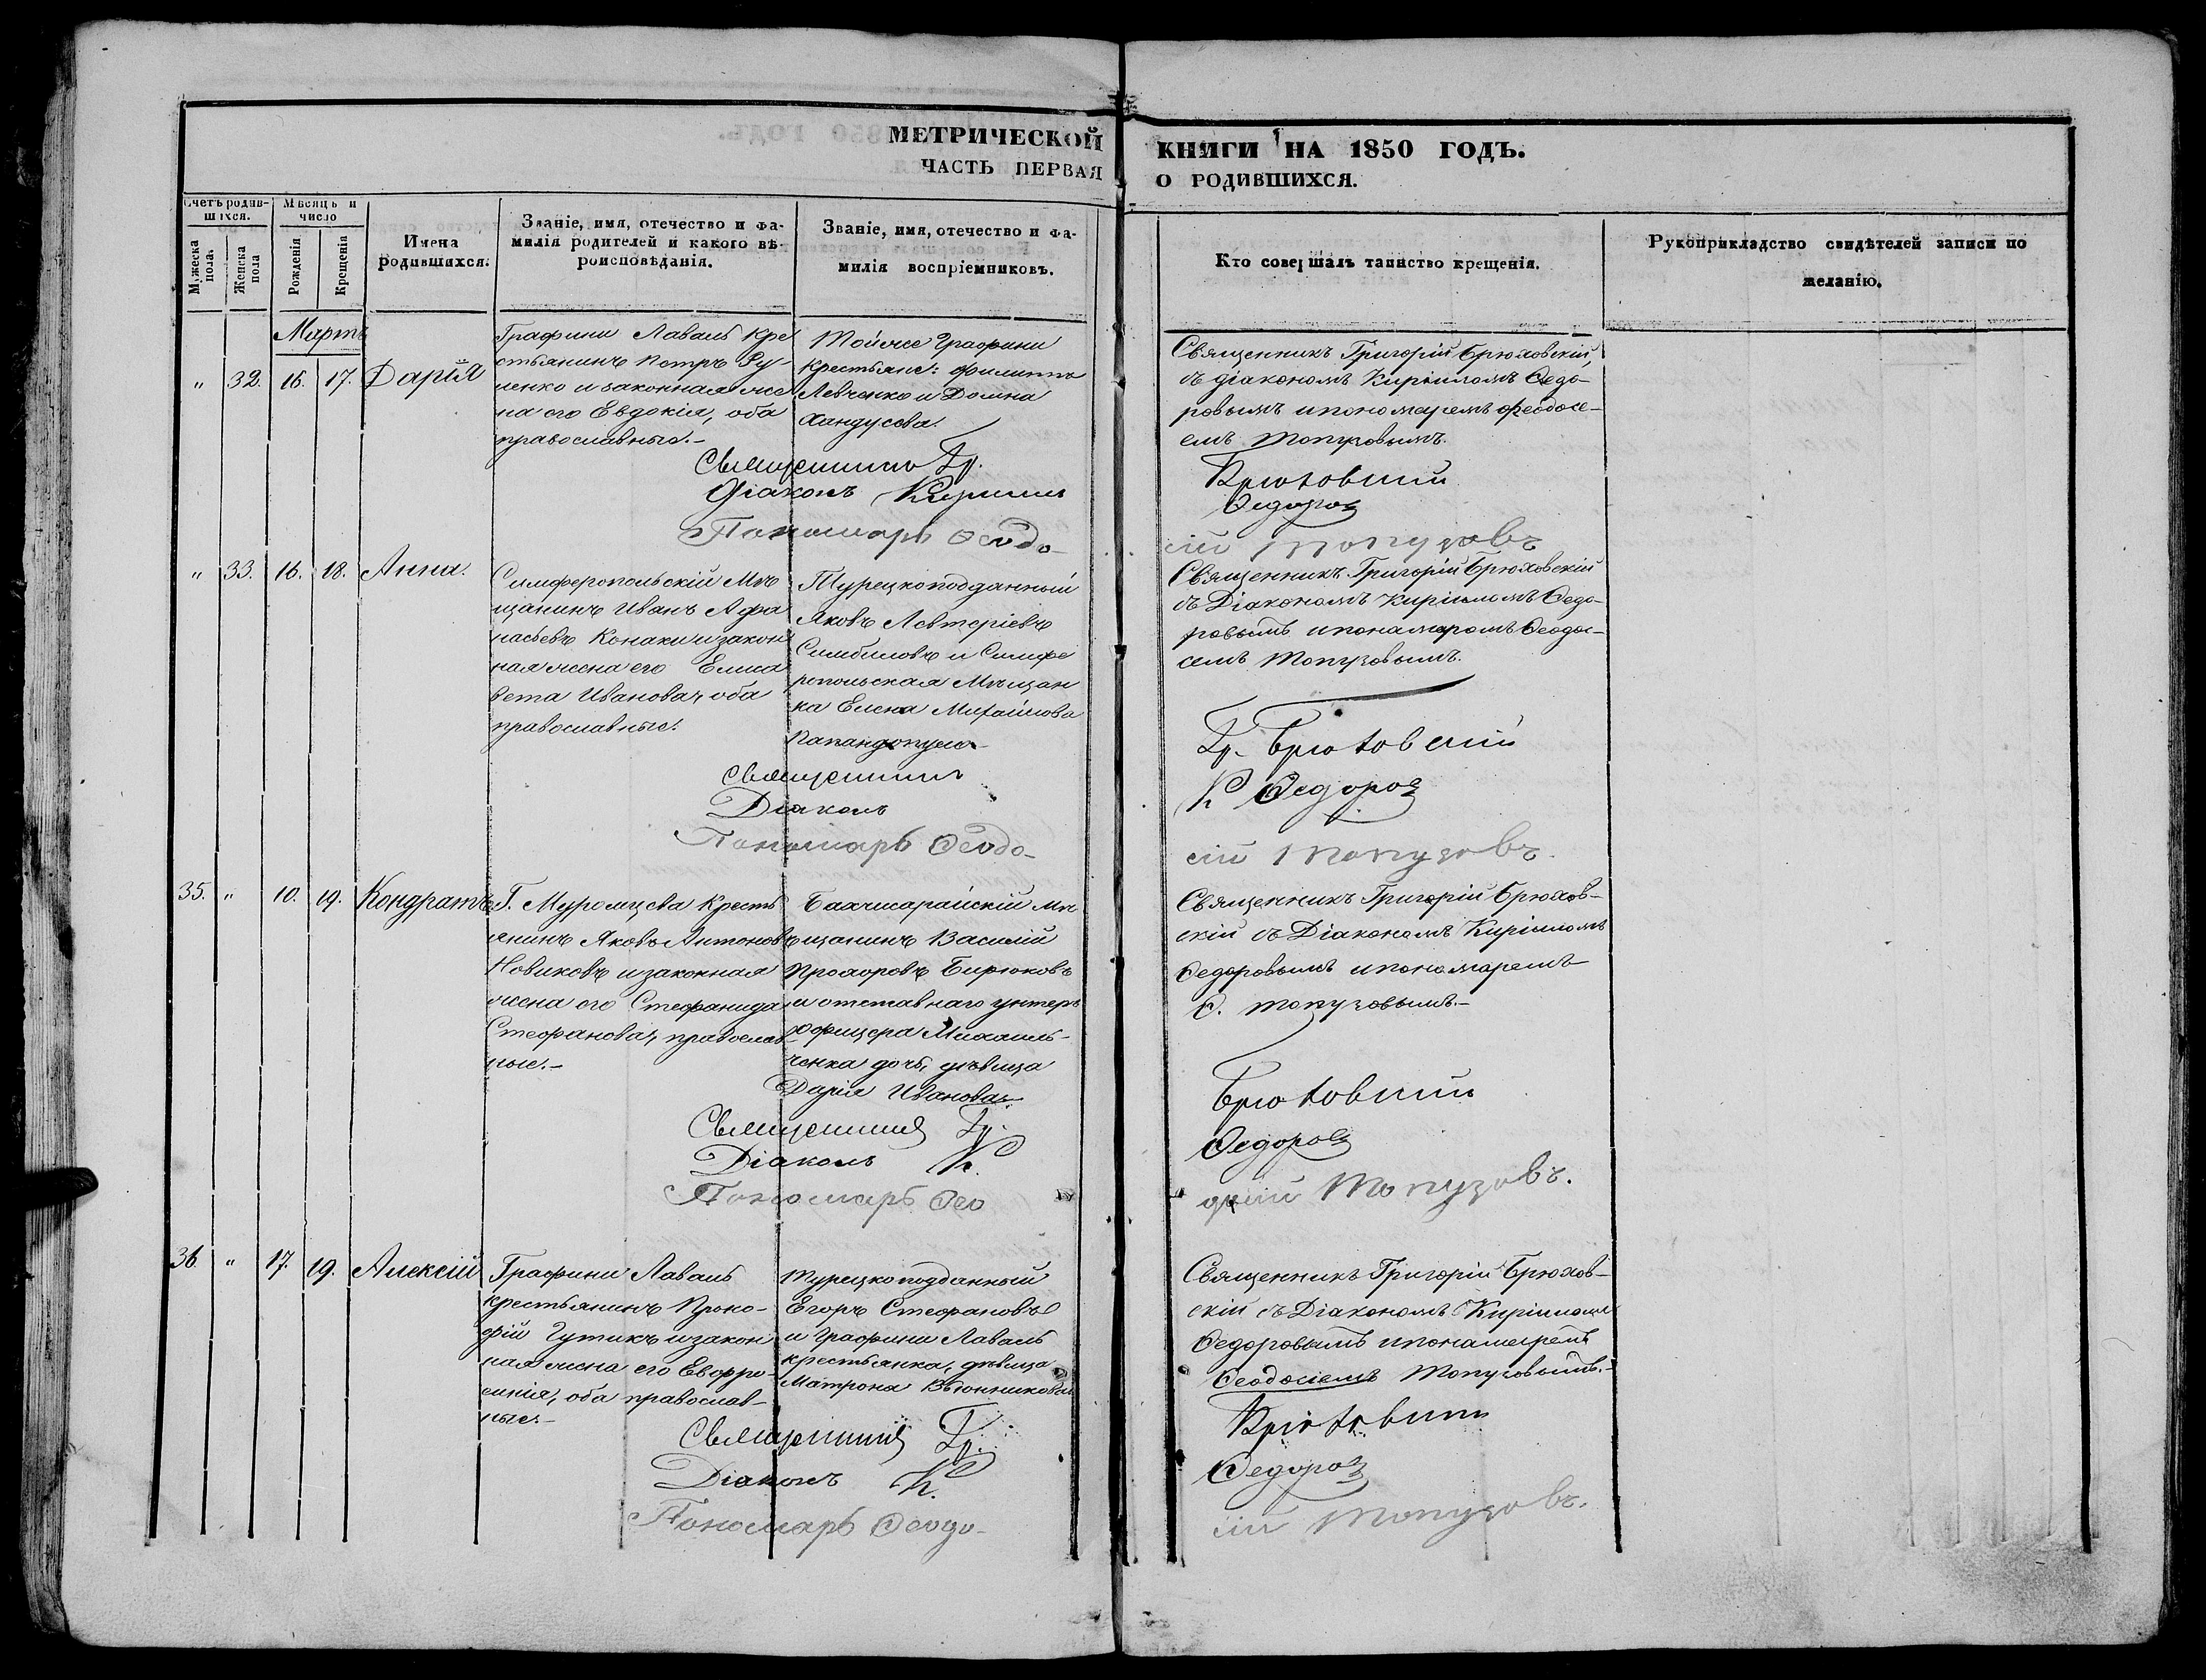 МЕТРИЧЕСКОЙ
КНИГИ НА 1850 ГОДЪ.
ЧАСТЬ ПЕРВАЯ
О РОДИВШИХСЯ.
Счетъ родив-
шихся.
Мужеска
пола.
Женска
пола
Мѣсяцъ и
число
Рожденія
Крещенія
Имена
родившихся.
Званіе, имя, отечество и фа-
милія родителей и какого вѣ-
роисповѣданія.
Званіе, имя, отечество и фа-
милія воспріемниковъ.
Кто совершалъ таинство крещенія.
Рукоприкладство свидѣтелей записи по
желанію.
Мартъ
„ 32. 16. 17. Дарія
Графини Лаваль кре
стьянинъ Петръ
ленко и законная же
на его Евдокія, оба
православные.-
Тойже Графини
крестьяне: Филиппъ
Левченко и Домна
Хандусова.
Священникъ Григорій Брюховскій
съ діакономъ Кирилломъ Ѳедо-
ровымъ и пономаремъ Феодосі-
емъ Топузовымъ.
Священникъ Гр. Брюховскій
Діаконъ Кириллъ Ѳедоровъ
Пономарь Ѳеодо-
сій Топузовъ
„ 33. 16. 18. Анна.
Симферопольскій Мѣ
щанинъ Иванъ Афа
насьевъ Конаки и закон
ная жена его Елиса
вета Иванова, оба
православные.
Турецкоподданный
Яковъ Левтеріевъ
и Симфе
ропольская Мѣщан
ка Елена Михайлова
Папандопуло-
Священникъ Григорій Брюховскій
съ Діакономъ Кирилломъ Ѳедо-
ровымъ и понамаромъ Ѳеодос-
семъ Топузовымъ.
Священникъ Гр. Брюховскій
Діаконъ К Ѳедоровъ
Пономарь Ѳеодо-
сій Топузовъ.
35. „ 10. 19. Кондратъ
Г. Муромцева кресть
янинъ Яковъ Антоновъ
Новиковъ и законная
жена его Стефанида
Стефанова, православ
ные.-
Бахчисарайскій мѣ
щанинъ Василій
Прохоровъ Бирюковъ
и отставнаго унтеръ
офицера Михаиль-
ченка дочь, дѣвица
Дарія Иванова.
Священникъ Григорій Брюхов-
скій съ Діакономъ Кирилломъ
Ѳедоровымъ и пономаремъ
Ѳ. Топузовымъ.-
Священникъ Гр. Брюховскій
Діаконъ К. Ѳедоровъ
Пономарь Ѳео
досій Топузовъ.
36. „ 17. 19. Алексій
Графини Лаваль
крестьянинъ Проко-
фій Гутикъ и закон
ная жена его Евфро-
синія, оба православ-
ные.-
Турецкоподданный
Егоръ Стефановъ
и Графини Лаваль
крестьянка, дѣвица
Матрона Вьюнникова
Священникъ Григорій Брюхов-
скій съ Діакономъ Кирилломъ
Ѳедоровымъ и понамаремъ
Ѳеодосіемъ Топузовымъ.-
Священникъ Гр. Брюховскій
Діаконъ К. Ѳедоровъ
Пономарь Ѳеодо-
сій Топузовъ.